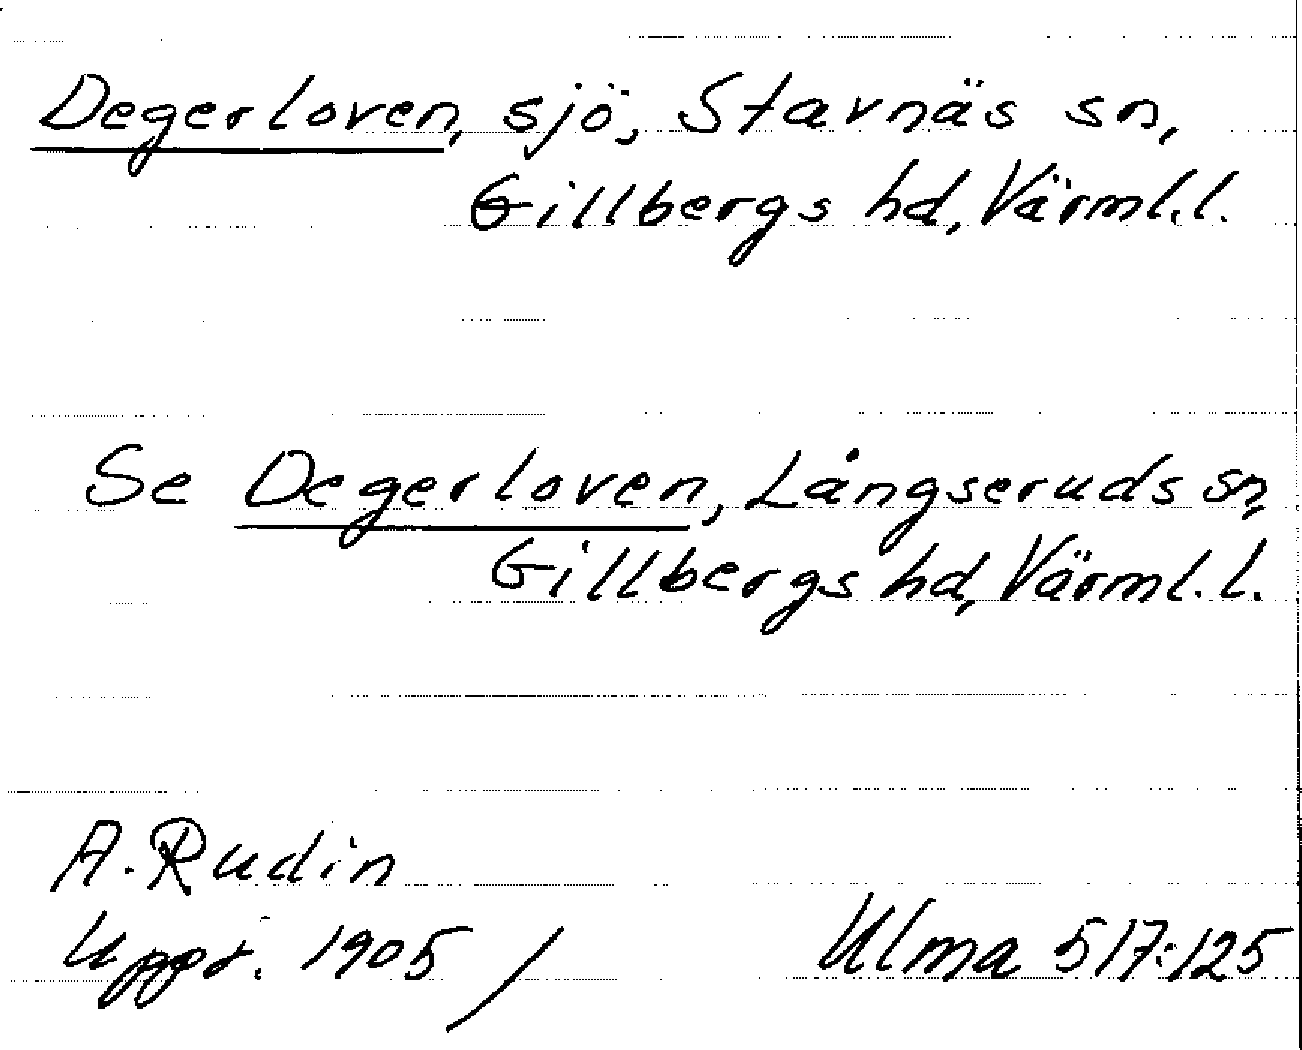 Degerloven, sjö, Stavnäs sn,
Gillbergs hd, Värml. l.
Se Degerloven, Långseruds sn,
Gillbergs hd, Värml. l.
A. Rudin
Uppt. 1905 / Ulma 517:125